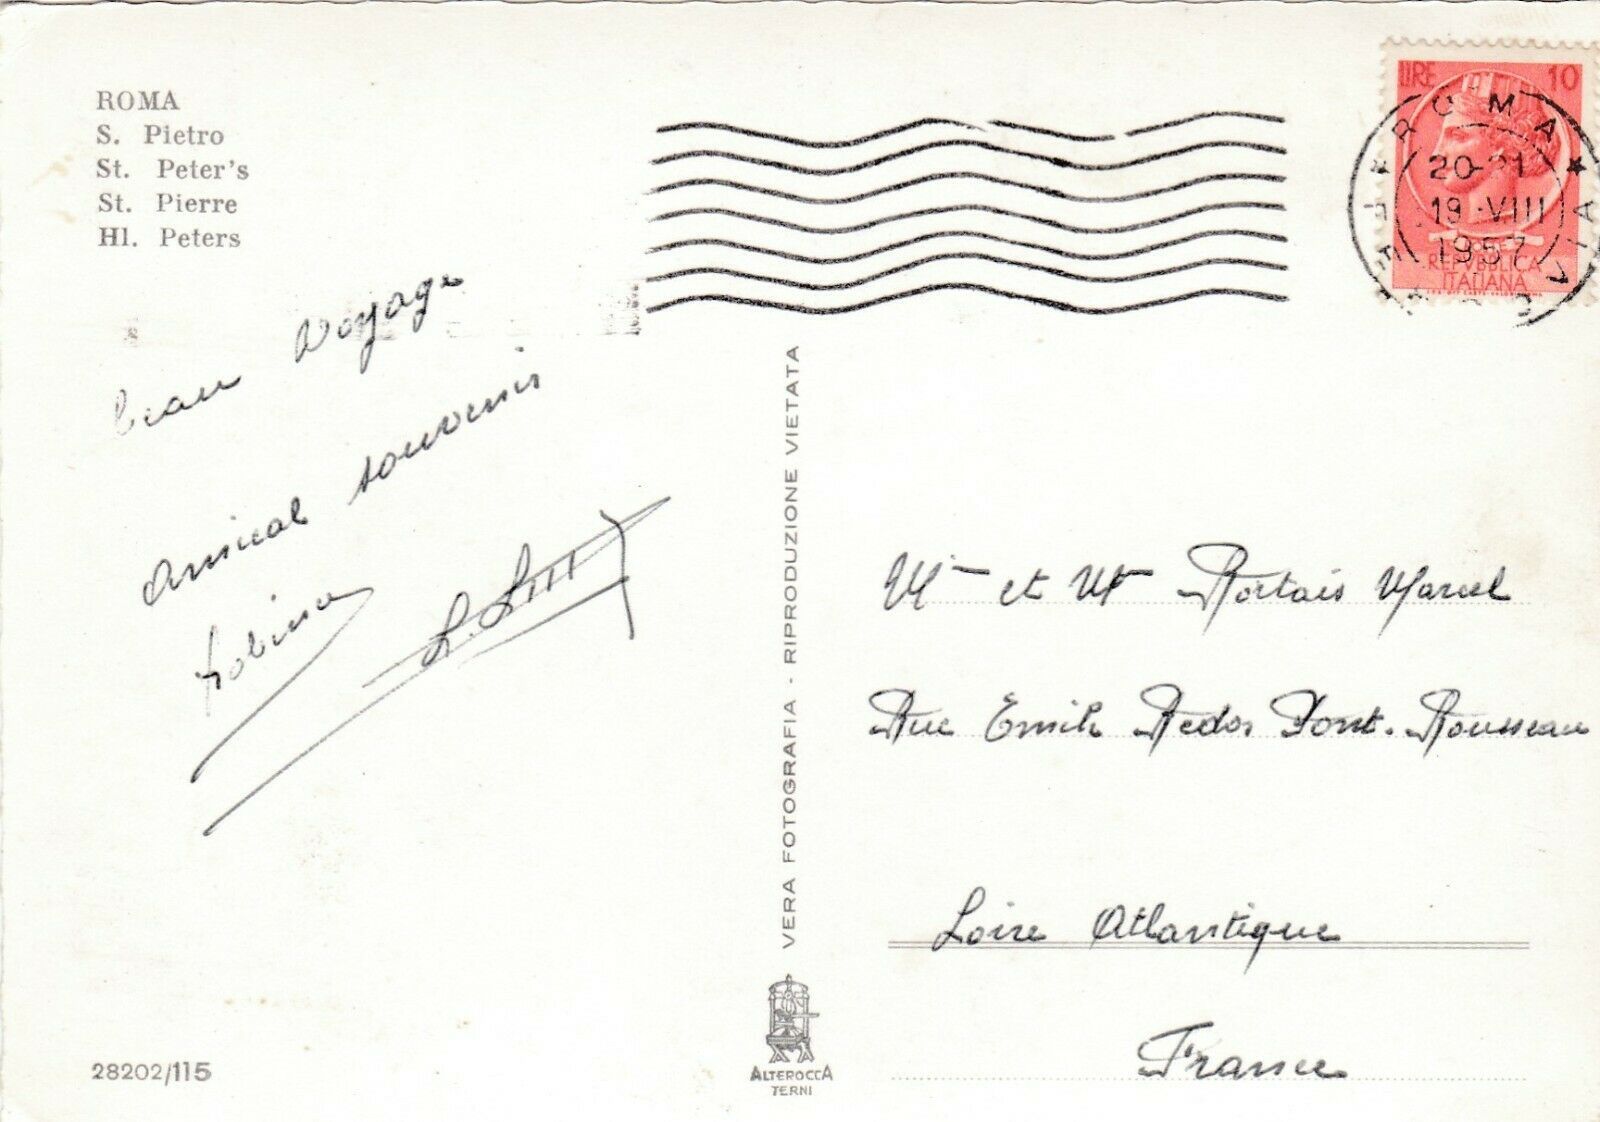 ROMA
S. Pietro
St. Peter's
St. Pierre
Hl. Peters
beau voyage
amical souvenir
LIRE 10
ROMA FERROVIA
20-21
19-VIII
1957
REPVBBLICA
ITALIANA
Mme et Mr Rortais Marcel
Rue Emile Redor Pont-Rousseau
Loire Atlantique
France
VERA FOTOGRAFIA - RIPRODUZIONE VIETATA
28202/115
ALTEROCCA
TERNI